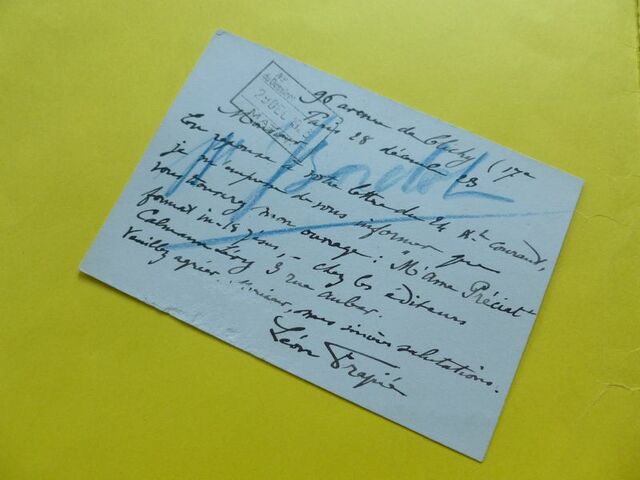 96 avenue de Clichy (17e
Paris 28 décemb 23
29 DEC 1923
Monsieur
En réponse à votre lettre du 24 Ct Courant,
je m'empresse de vous informer que
vous trouverez mon ouvrage : "M'ame Préciat"
format in-16 jésus, – chez les éditeurs
Calmann-Lévy 3 rue Auber.
Veuillez agréer, Monsieur, mes sincères salutations.
Léon Frapié